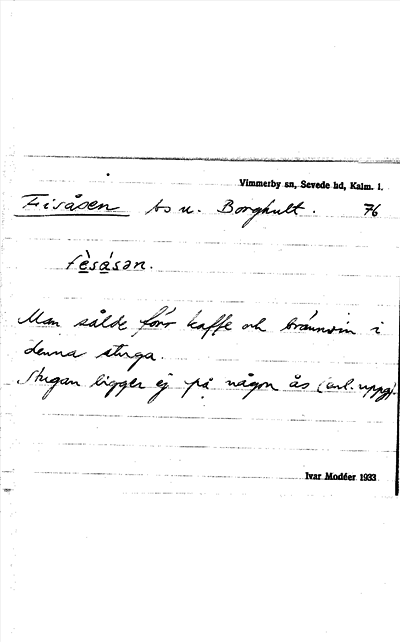 Vimmerby sn, Sevede hd, Kalm. l.
Fisåsen ts u. Borghult. 76
fè̱sá̱sən.
Man sålde förr kaffe och brännvin i
denna stuga.
Stugan ligger ej på någon ås (enl. uppg).
Ivar Modéer 1933